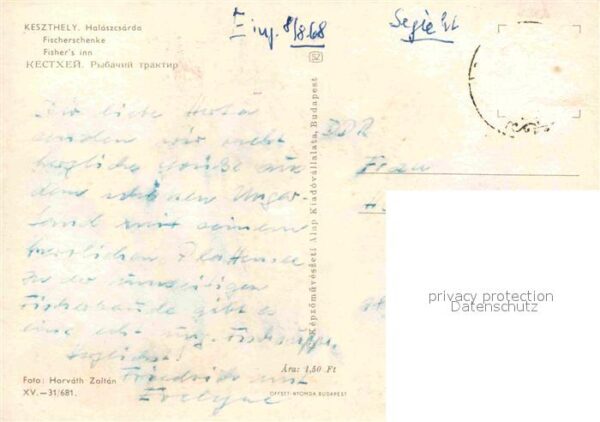 KESZTHELY. Halászcsárda
Fischerschenke
Fisher's inn
КЕСТХЕЙ. Рыбачий трактир
Eing. 8/8.68
Dir liebe Herta
senden wir recht
herzliche Grüße aus
dem schönen Ungar-
land mit seinem
herrlichen Plattensee
In der
Fischerbaude gibt es
eine ung. Fischsuppe.
Friedrich und
Evelyne
Foto: Horváth Zoltán
XV.—31/681.
Képzőművészeti Alap Kiadóvállalata, Budapest
Ára: 1,50 Ft
OFFSET-NYOMDA BUDAPEST
DDR
Frau
privacy protection
Datenschutz